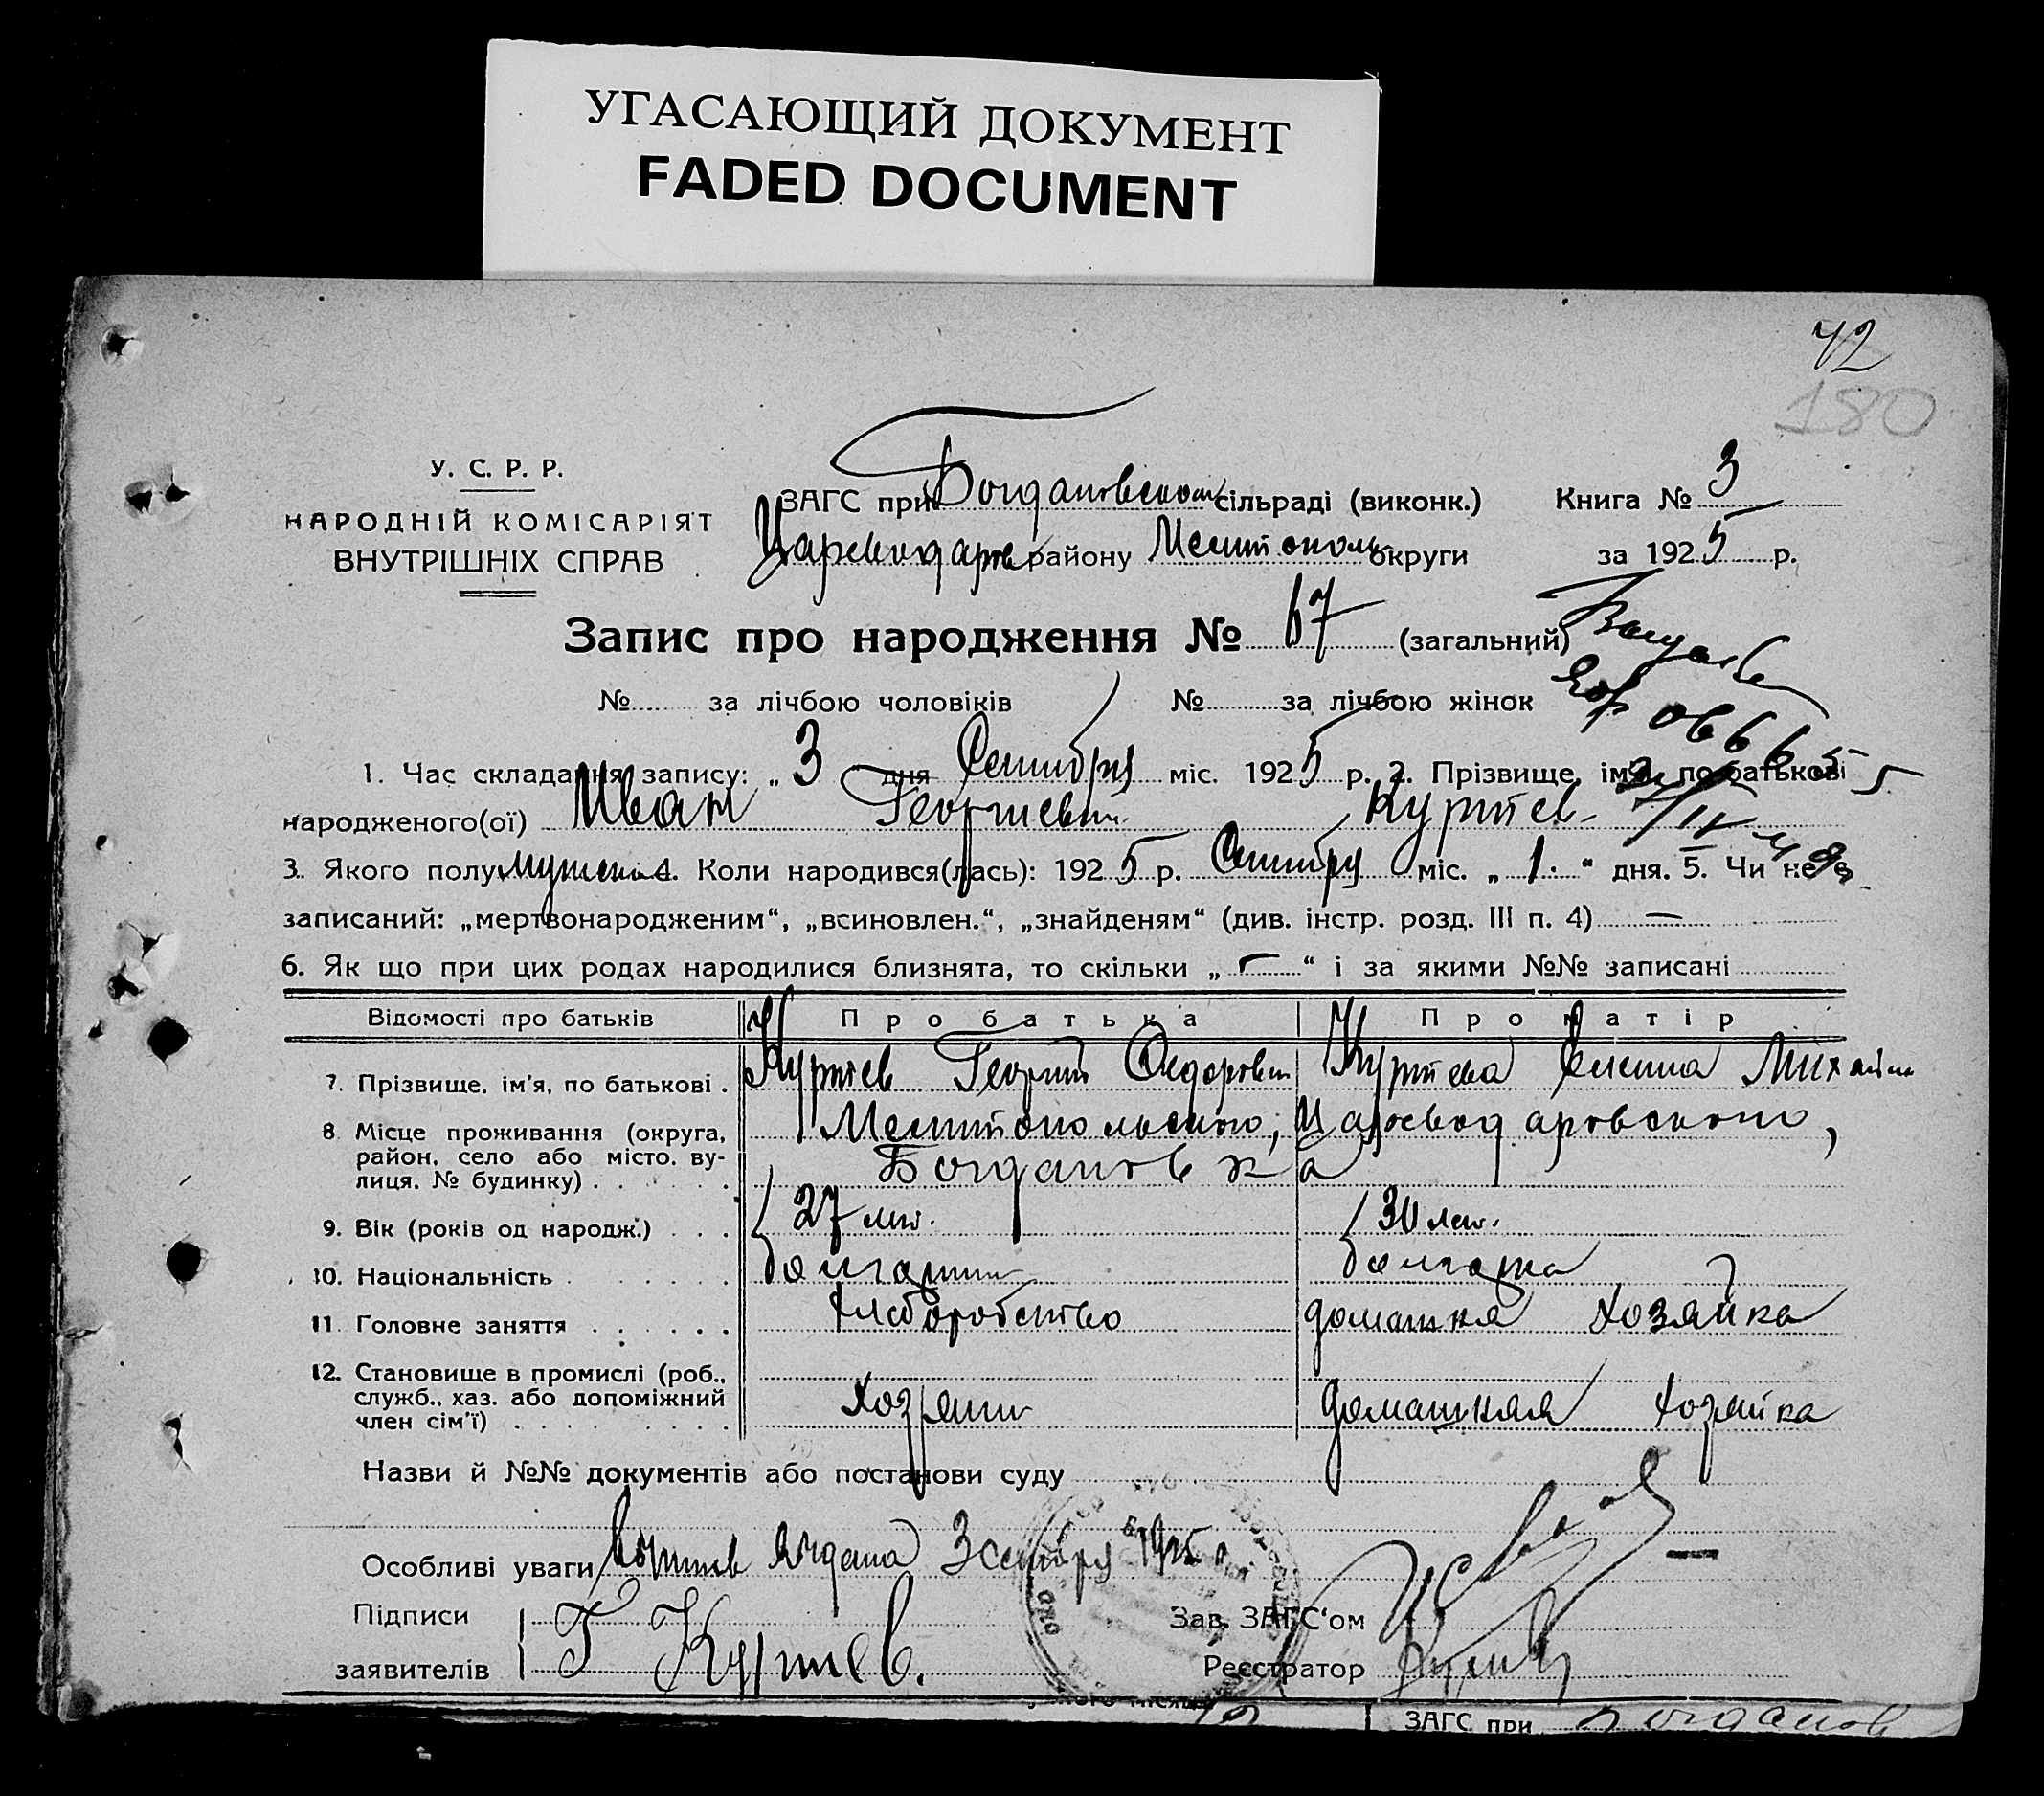 УГАСАЮЩИЙ ДОКУМЕНТ
FADED DOCUMENT
42
180
У. С. Р. Р.
НАРОДНІЙ КОМІСАРІЯТ
ВНУТРІШНІХ СПРАВ
ЗАГС при Богдановском сільраді (виконк.) Книга № 3
району Мелитополь округи за 1925 р.
Запис про народження № 67 (загальний)
№ за лічбою чоловіків № за лічбою жінок
1. Час складання запису: „ 3 дня Сентября міс. 1925 р. 2. Прізвище, ім'я, по батькові
народженого(ої) Иван Георгиевич Куртев
3. Якого полу мужской 4. Коли народився(лась): 1925 р. Сентября міс. „ 1. “ дня. 5. Чи не є
записаний: „мертвонародженим“, „всиновлен.“, „знайденям“ (див. інстр. розд. III п. 4) —
6. Як що при цих родах народилися близнята, то скільки „ — “ і за якими №№ записані
Відомості про батьків Про батька Про матір
7. Прізвище. ім'я, по батькові . Куртев Георгий Федорович Куртева Елена Михайл
8. Місце проживання (округа, район, село або місто, вулиця. № будинку) Мелитопольского,
Богдановка
9. Вік (років од народж.) . . . 27 лет. 30 лет.
10. Національність болгарин болгарка
11. Головне заняття хлеборобство домашня хозяйка
12. Становище в промислі (роб.,
служб., хаз. або допоміжний
член сім'ї) хозяин домашняя хозяйка
Назви й №№ документів або постанови суду
Особливі уваги 3 сентября 1925 г
Підписи
заявителів Г Куртев.
Зав. ЗАГС'ом
Реєстратор
ЗАГС при Богданов